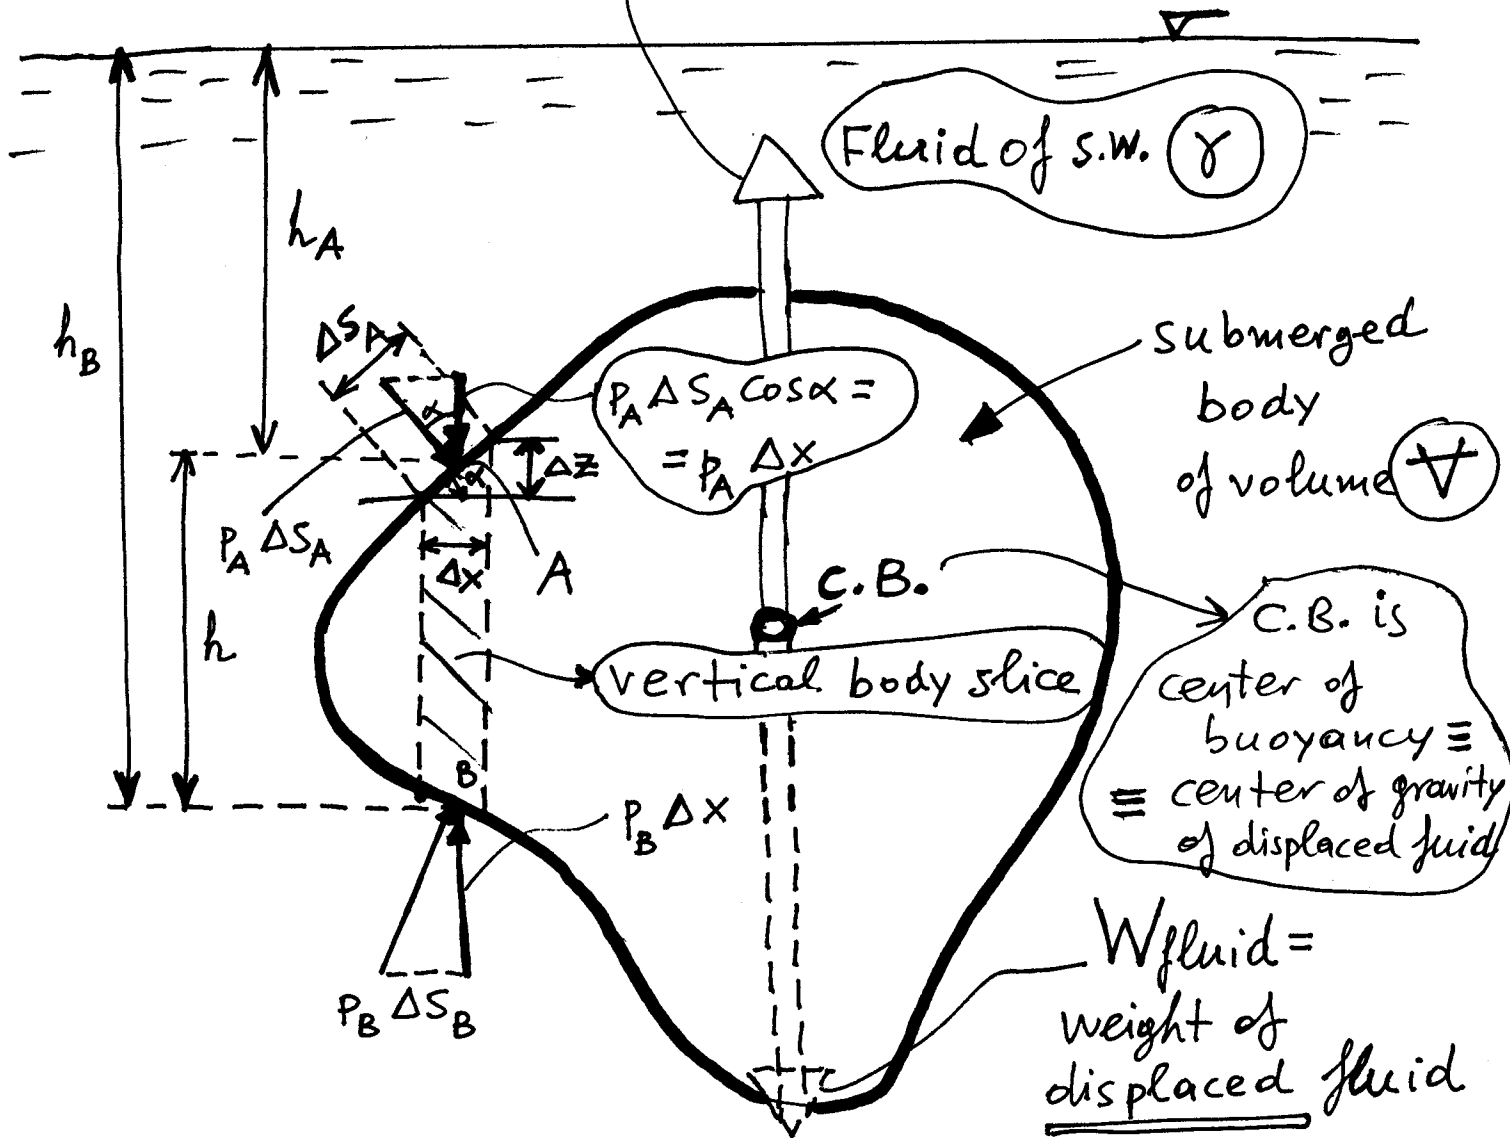 Fluid of s.w. γ
h_A
h_B
ΔS_A
submerged
body
of volume V
α
p_A ΔS_A cosα =
= p_A Δx
Δz
α
p_A ΔS_A
A
Δx
C.B.
h
vertical body slice
C.B. is
center of
buoyancy ≡
≡ center of gravity
of displaced fluid
B
p_B Δx
p_B ΔS_B
W_fluid =
weight of
displaced fluid